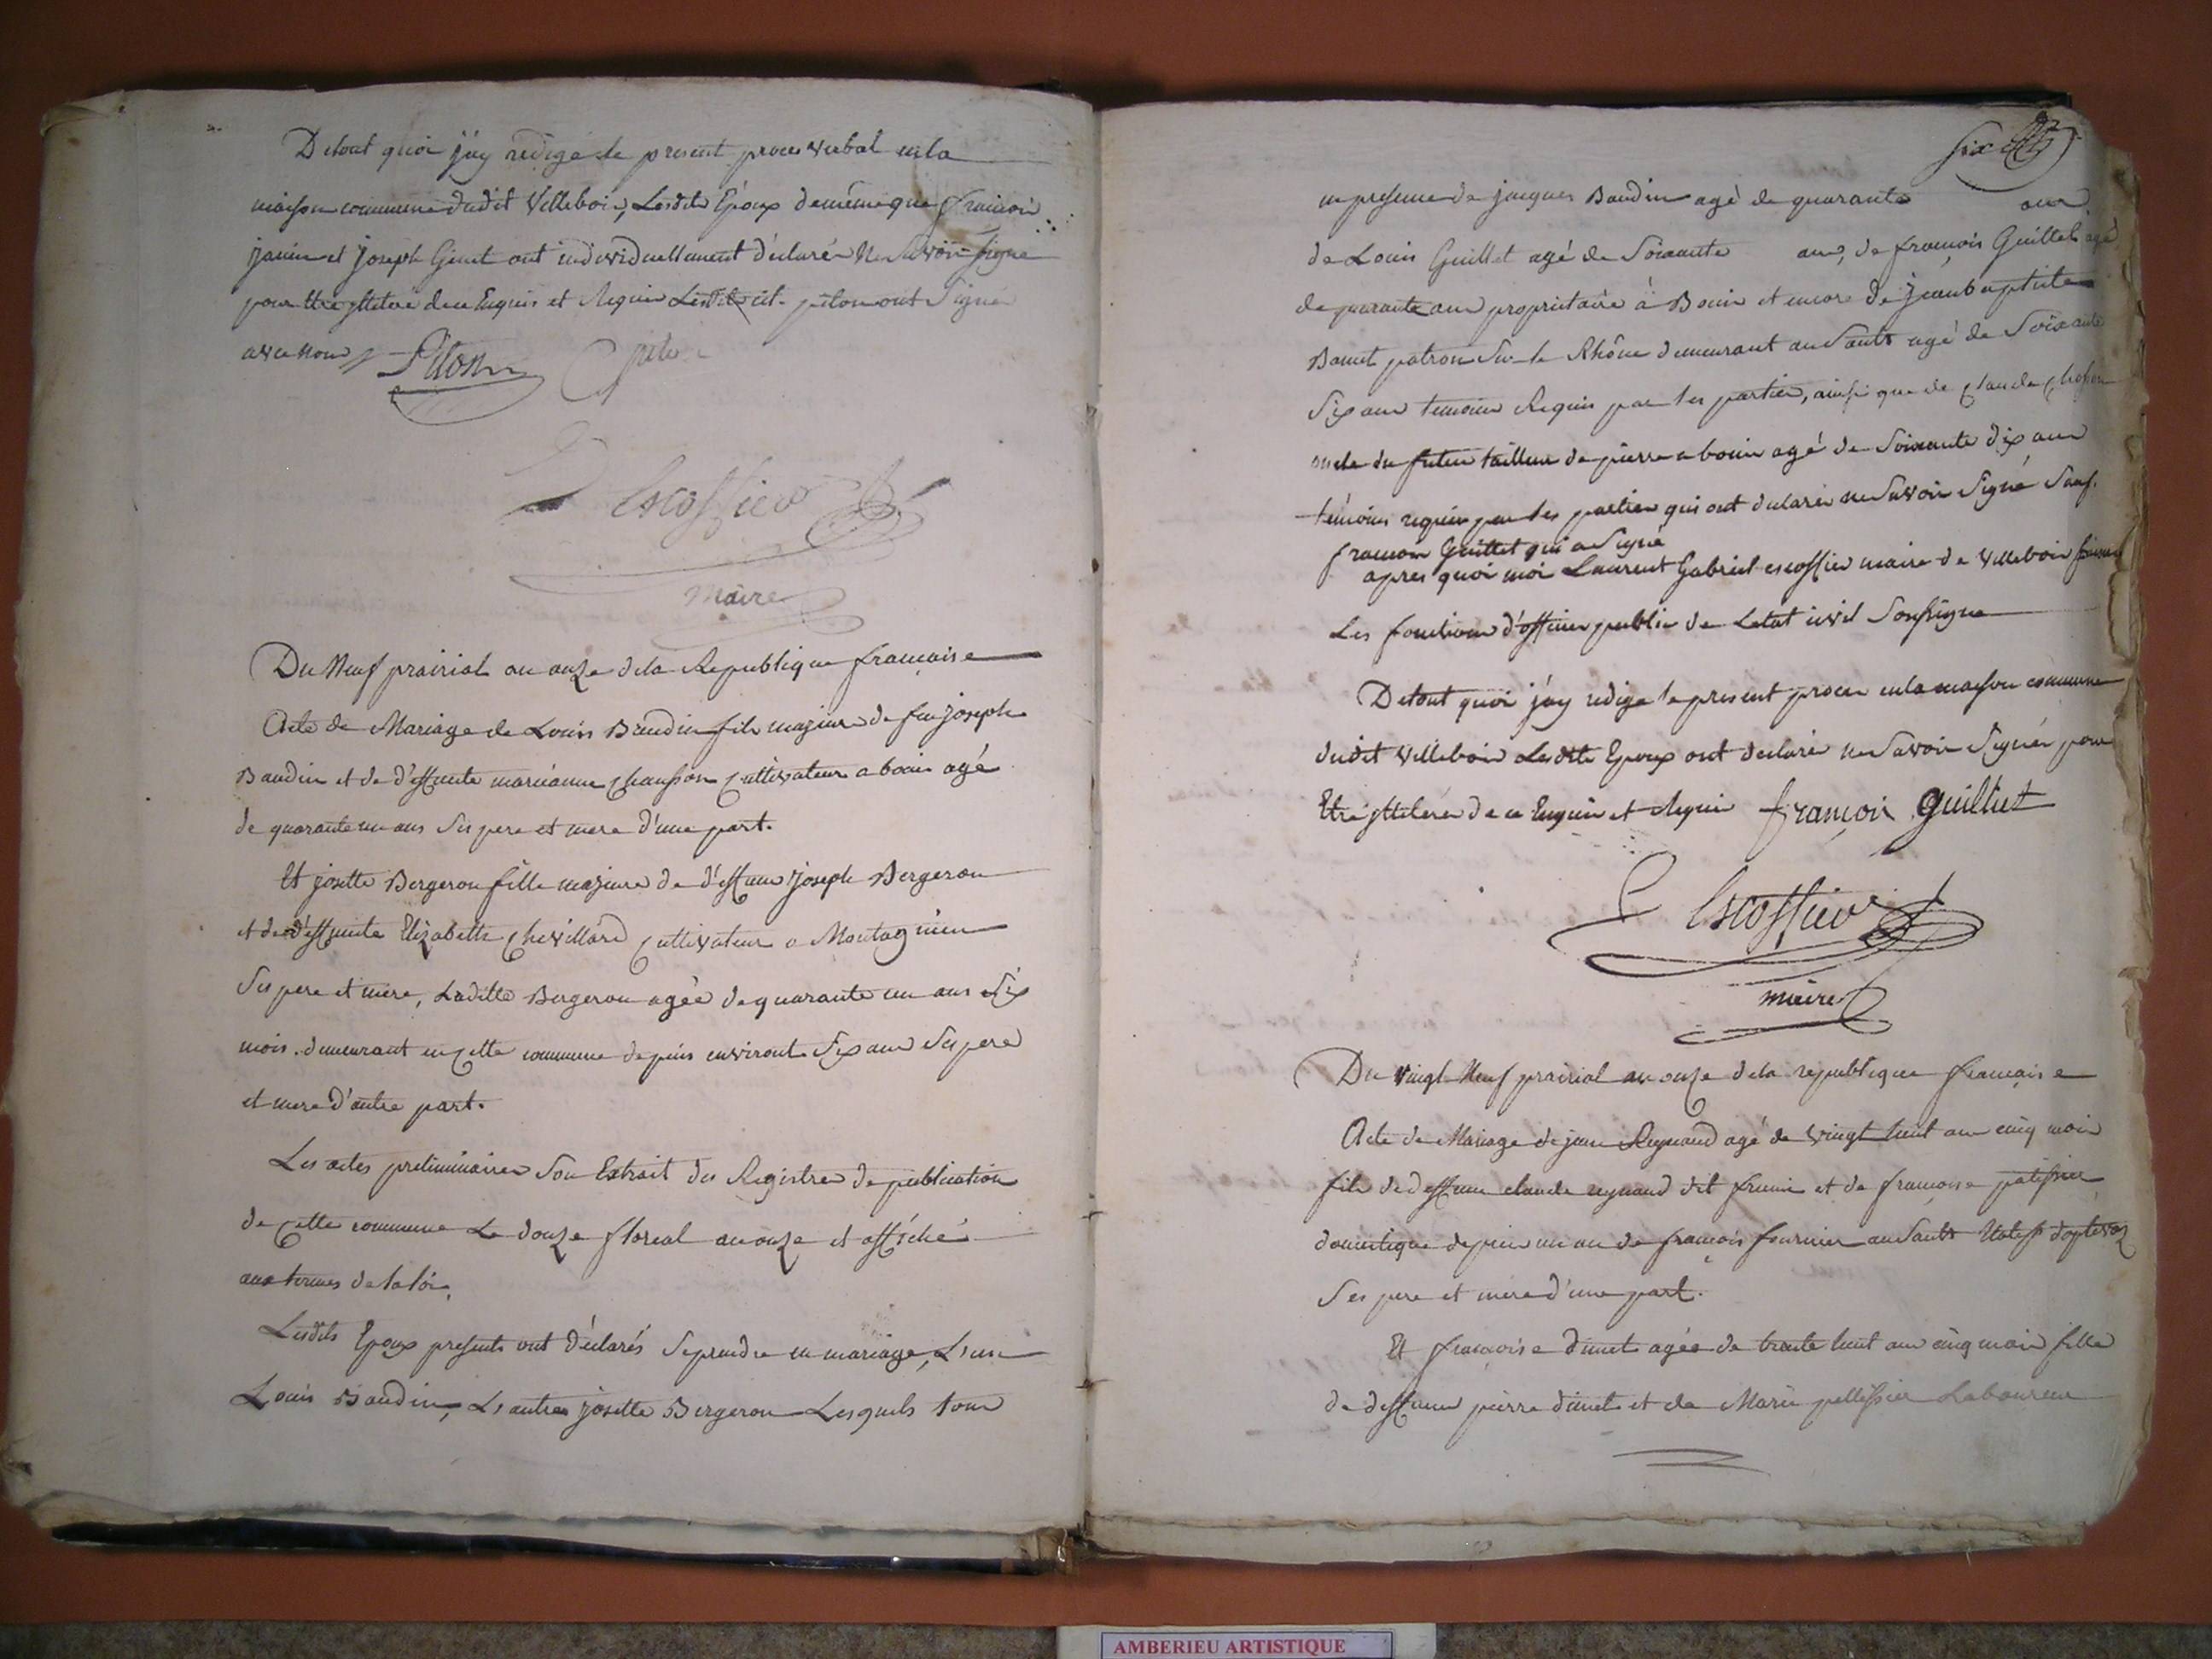 De tout quoi j'ay redigé le present proces verbal en la
maison commune dudit Villebois, Lesdits Epoux de même que françois
janin et joseph Ginet ont individuellement déclarés ne savoir signé
pour être de ce Enquis et Requis cit. piton ont Signé
avec nous
Piton piton
Escoffier
maire
Du Neuf prairial an onze de la Republique francaise
Acte de Mariage de Louis Baudin fils majeur de feu joseph
Baudin et de d'effunte marianne chanson cultivateur a bouis agé
de quarante un ans Ses pere et mere d'une part.
Et josette Bergeron fille majeure de d'effunt joseph Bergeron
et de d'effunte Elizabette chevillard cultivateur a Montagnieu
Ses pere et mere, Laditte Bergeron agée de quarante un ans Six
mois demeurant en cette commune depuis environt Six ans Ses pere
et mere d'autre part.
Les actes preliminaires Son Extrait des Registres de publication
de cette commune Le douze floreal an onze et affiché
aux termes de la loi,
Lesdits Epoux presents ont déclarés Se prendre en mariage, L'une
Louis Baudin, L'autre josette Bergeron Lesquels tous
six
en presence de jacques Baudin agé de quarante ans
de Louis Guillet agé de Soixante ans, de françois Guillet agé
de quarante ans proprietaire à Bouis et encore de jean baptiste
Bonnet patron Sur le Rhône demeurant au Sault agé de Soixante
Six ans temoins Requis par les parties, ainsi que de claude
oncle du futur tailleur de pierre a bouis agé de Soixante dix ans
témoins requis par les parties qui ont declarés ne Savoir Signé Sauf
francois Guillet qui a Signé
apres quoi moi Laurent Gabriel escoffier maire de Villebois faisant
Les fonctions d'officier public de Letat civil Soussigne
De tout quoi j'ay redigé le present proces en la maison commune
dudit Villebois Lesdits Epoux ont declarés ne Savoir Signér pour
Etre de ce Enquis et Requis françois Guillet
Escoffier
maire
Du vingt Neuf prairial an onze de la republique francaise
Acte de Mariage de jean Reynaud agé de vingt huit ans cinq mois
fils de deffunt claude reynaud dit et de francoise pelissier
domestique depuis un an de françois fournier au Sault
Ses pere et mere d'une part.
Et françoise dunet agée de trente huit ans cinq mois fille
de deffunt pierre dunet et de Marie pellissier Laboureur
AMBERIEU ARTISTIQUE